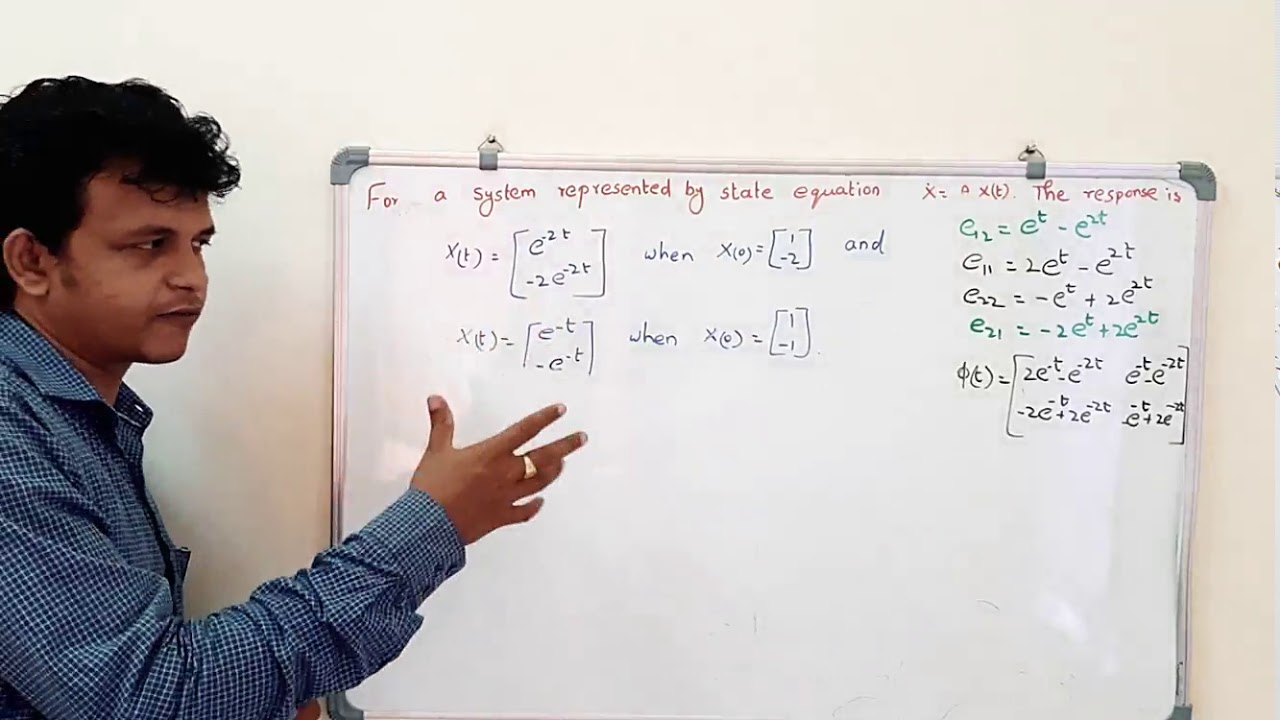 For a system represented by state equation ẋ = A x(t). The response is
x(t) = [e^-2t ; -2e^-2t] when x(0) = [1 ; -2] and
x(t) = [e^-t ; -e^-t] when x(0) = [1 ; -1].
e₁₂ = e^t - e^2t
e₁₁ = 2e^t - e^2t
e₂₂ = -e^t + 2e^2t
e₂₁ = -2e^t + 2e^2t
ϕ(t) = [2e^-t - e^-2t  e^-t - e^-2t ; -2e^-t + 2e^-2t  -e^-t + 2e^-2t]